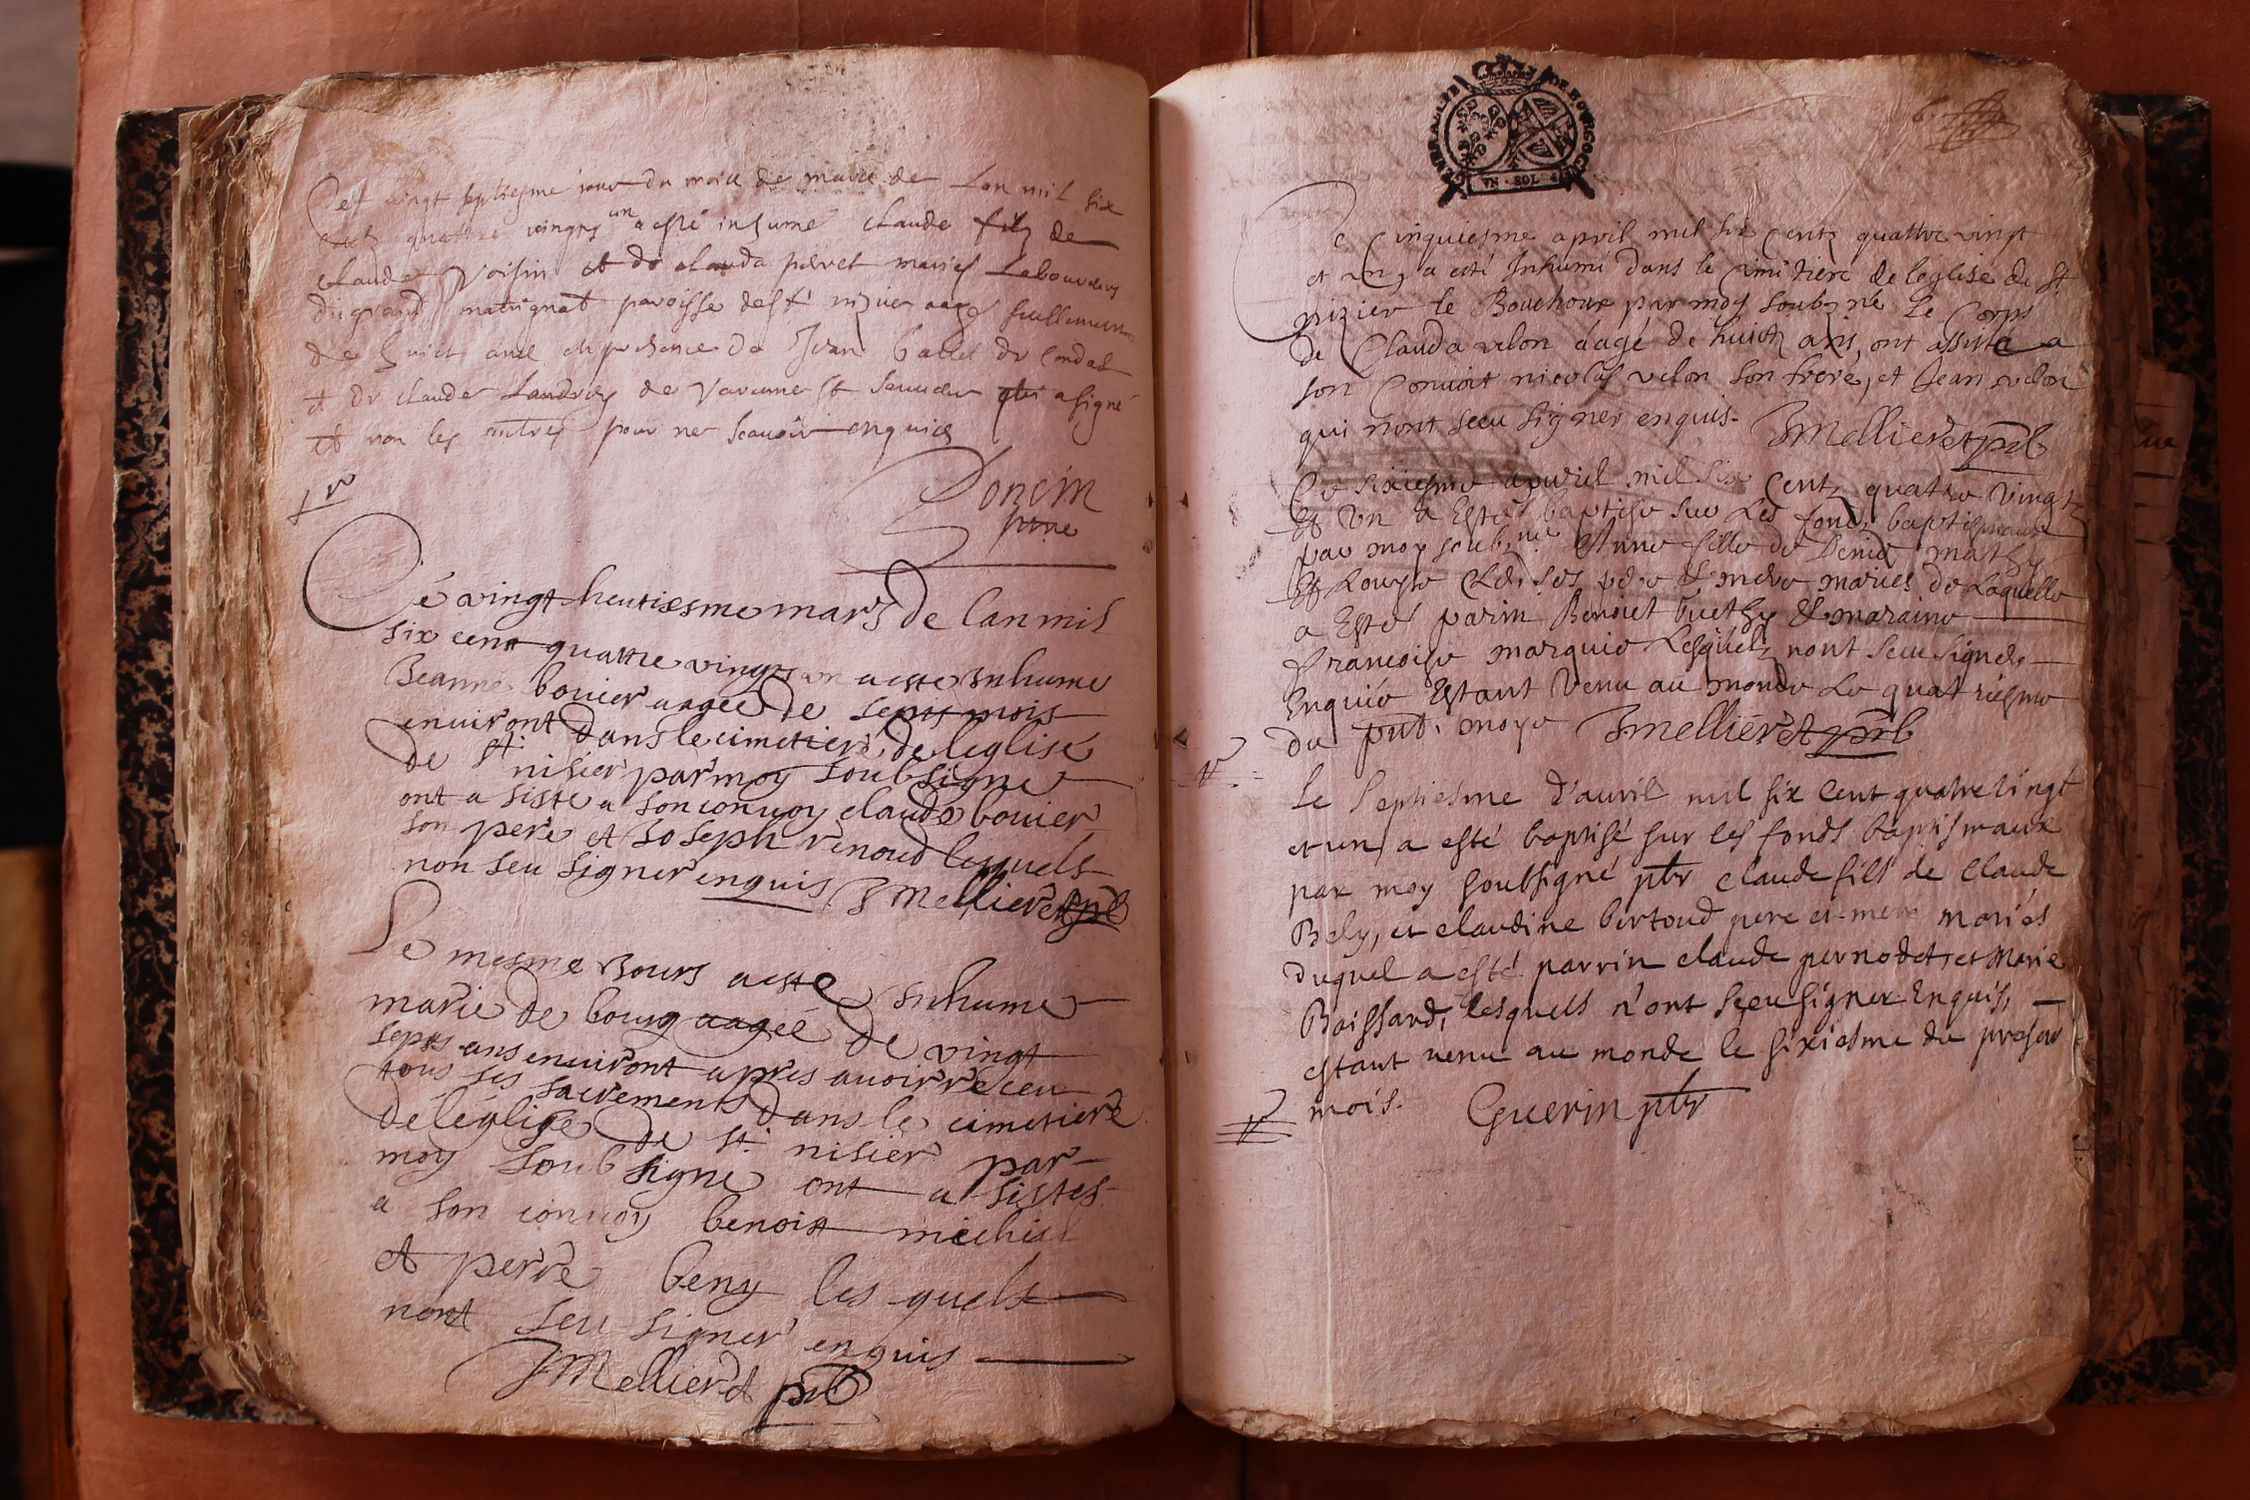 Cet vingt septiesme jour du mois de mars de Lan mil six
cent quattre vingts un a esté inhumé claude filz de
claude Voisin et de clauda pervet mariés Laboureurs
du grand matignat paroisse de st nizier aagé seullement
de huict ans en presence de Jean de Condal
et de claude Landrey de Varenne st Sauveur qui a signé
et non les autres pour ne scavoir enquis
Poncin
pbre
Ce vingt heutiesme mars de Lan mil
six cent quattre vingts un a este inhume
Jeanne bouier aagée de septs mois
enuiront dans le cimetiere de leglise
de st nisier par moy soubsigne
ont a siste a son conuoy claude bouier
son pere et Joseph renoud lesquels
non seu signer enquis JMellieret pbr
Le mesme Jours a este inhume
marie de bourg aageé de vingt
septs ans enuiront apres auoir receu
tous ses sacrements dans le cimetiere
de léglise de st nisier par
moy soubsigne ont a sistes
a son conuoy benoit michial
et perre beny les quels
nont seu signer enquis
JMellieret pbr
GENERALITE DE BOURGOGNE
VN SOL 4
6
Ce Cinquiesme apvril mil six Centz quattre vingt
et un, a esté Inhumé dans le Cimitiere de leglise de St
nizier le Bouchoux par moy soubz.né le Corps
de Clauda velon aagé de huict ans, ont assisté a
son Convoit nicolas velon son frere, et Jean velon
qui nont sceu signer enquis. JMellieret pbr
Ce sixiesme apvril mil six Centz quatre Vingtz
Et Un a Estés baptise sur Les fonds baptismaux
par moy soubz.né Anne fille de Denis mathy
Et Louyse ses pere & mere maries de Laquelle
a Estes parin Benoict buethy & maraine
francoise marquis Lesquelz nont sceu signer
Enquis Estant Venu au monde Le quatriesme
du pnt. moys JMellieret pbr
Le Septiesme d'auril mil six Cent quatre Vingt
et un a esté baptisé sur les fonds baptismaux
par moy soubsigné pbr claude fils de Claude
Bely, et claudine bertoud pere et mere mariés
duquel a esté parrin claude pernodet, et Marie
Boissard, lesquels n'ont sceu signer Enquis,
estant venu au monde le sixiesme du present
mois. Guerin pbr